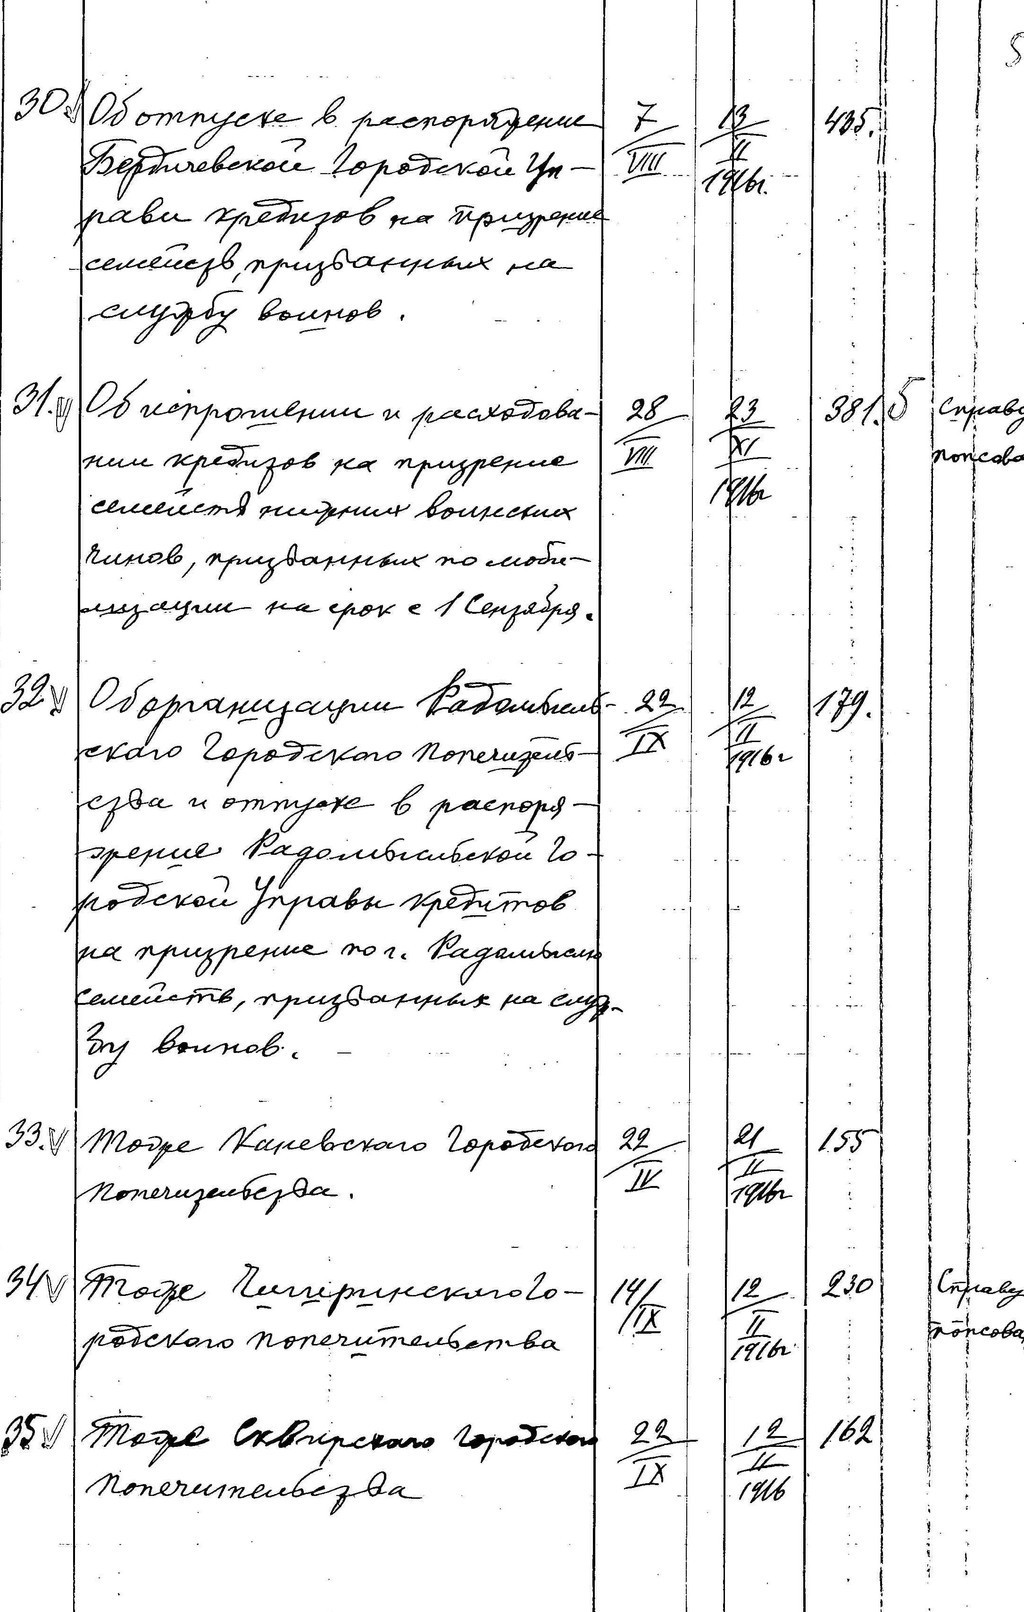 5
30. Об отпуске в распоряжение 7 13 435.
Бердичевской Городской Уп- VIII II
равы кредитов на призрение 1916г.
семейств, призванных на
службу воинов.
31. Об испрошении и расходова- 28 23 381. б Справу
нии кредитов на призрение VIII XI
семейств нижних воинских 1916г
чинов, призванных по моби-
лизации на срок с 1 Сентября.
32. Об организации Радомысль- 22 12 179.
ского Городского Попечитель- IX II
ства и отпуске в распоря- 1916г
жение Радомысльской Го-
родской Управы кредитов
на призрение по г. Радомыслю
семейств, призванных на служ-
бу воинов.
33. Тоже Каневского Городского 22 21 155
Попечительства. IV II
1916г
34 Тоже Чигиринского Го- 14/IX 12 230 Справу
родского попечительства II
1916г
35 Тоже Сквирского Городского 22 12 162
Попечительства IX II
1916